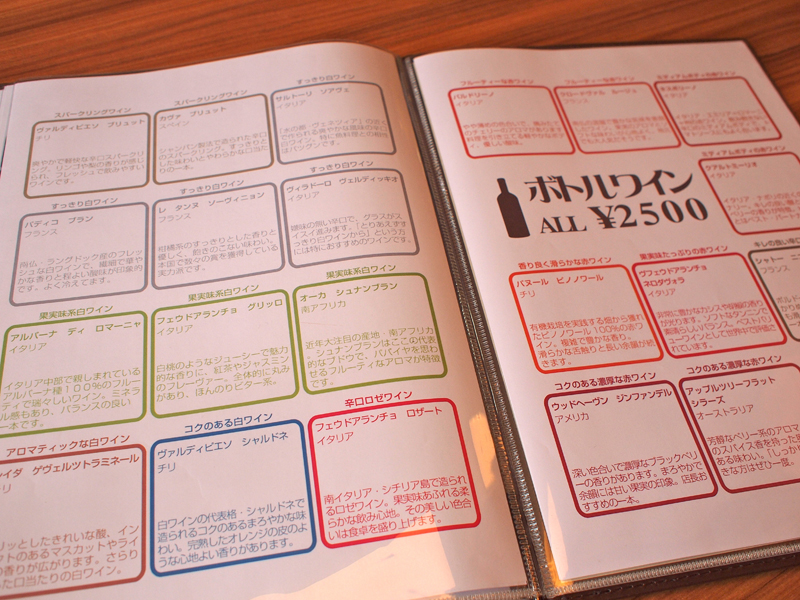 スパークリングワイン
ヴァルディビエソ ブリュット
チリ
爽やかで軽快な辛口スパークリ
ング。リンゴや梨の香りが感じ
られ、フレッシュで飲みやすい
ワインです。
スパークリングワイン
カヴァ ブリュット
スペイン
シャンパン製法で造られた辛口
のスパークリング。すっきりと
した味わいとやわらかな口当た
りの一本。
すっきり白ワイン
サルトーリ ソアヴェ
イタリア
すっきり白ワイン
バディコ ブラン
フランス
南仏・ラングドック産のフレッ
シュな白ワインで、繊細で華や
かな香りと程よい酸味が印象的
です。よく冷えてます。
すっきり白ワイン
レ タンヌ ソーヴィニョン
フランス
柑橘系のすっきりとした香りと
優しく、飽きのこない味わい。
本国で数々の賞を獲得している
実力派です。
すっきり白ワイン
ヴィラドーロ ヴェルディッキオ
イタリア
嫌味の無い辛口で、グラスがス
イスイ進みます。「とりあえずす
っきり白ワインから」という方
には特におすすめのワインです。
果実味系白ワイン
アルバーナ ディ ロマーニャ
イタリア
イタリア中部で親しまれている
アルバーナ種100%のフルー
ティで瑞々しいワイン。ミネラ
ル感もあり、バランスの良い
一本です。
果実味系白ワイン
フェウドアランチョ グリッロ
イタリア
白桃のようなジューシーで魅力
的な香りに、紅茶やジャスミン
のフレーヴァー。全体的に丸み
があり、ほんのりビター系。
果実味系白ワイン
オーカ シュナンブラン
南アフリカ
近年大注目の産地・南アフリカ
。シュナンブランはここの代表
的なブドウで、パパイヤを思わ
せるフルーティなアロマが特徴
です。
アロマティックな白ワイン
イダ ゲヴェルツトラミネール
チリ
リッとしたきれいな酸、イン
トのあるマスカットやライ
の香りが広がります。さらり
た口当たりの白ワイン。
コクのある白ワイン
ヴァルディビエソ シャルドネ
チリ
白ワインの代表格・シャルドネで
造られるコクのあるまろやかな味
わい。完熟したオレンジの皮のよ
うな心地よい香りがあります。
辛口ロゼワイン
フェウドアランチョ ロザート
イタリア
南イタリア・シチリア島で造られ
るロゼワイン。果実味あふれる柔
らかな飲み心地。その美しい色合
いは食卓を盛り上げます。
フルーティーな赤ワイン
バルドリーノ
イタリア
フルーティーな赤ワイン
フランス
ミディアムボディの赤ワイン
イタリア
ボトルワイン
ALL ¥2500
ミディアムボディの赤ワイン
イタリア
香り良く滑らかな赤ワイン
バヌール ピノノワール
チリ
有機栽培を実践する畑から獲れ
たピノノワール100%の赤ワ
イン。複雑で豊かな香り、
滑らかな舌触りと長い余韻が続
きます。
果実味たっぷりの赤ワイン
ヴフェウドアランチョ
ネロダヴォラ
イタリア
キレの良い
シャトー
フランス
コクのある濃厚な赤ワイン
ウッドヘーヴン ジンファンデル
アメリカ
深い色合いで濃厚なブラックベリ
ーの香りがあります。まろやかで
余韻には甘い果実の印象。店長お
すすめの一本。
コクのある濃厚な赤ワイン
アップルツリーフラット
シラーズ
オーストラリア
芳醇なベリー系のアロマ
のスパイス香を持った
ある味わい。「しっかり
きな方はぜひ一度。